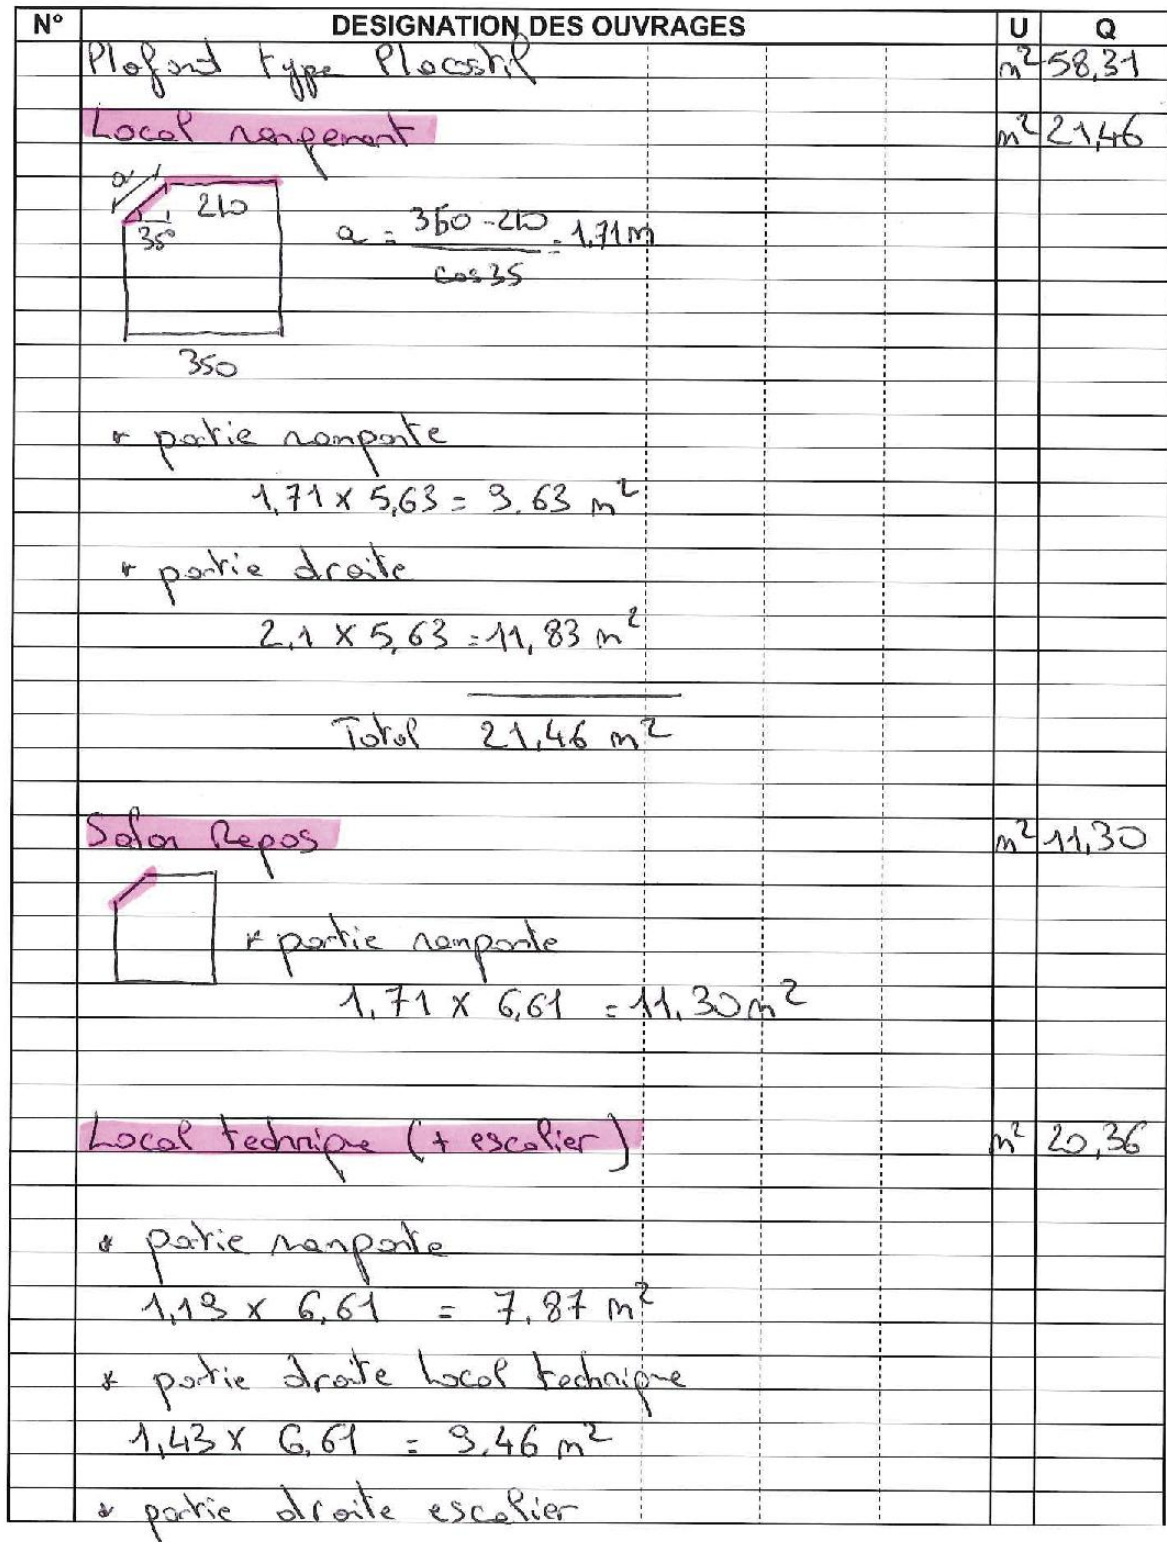 N° DESIGNATION DES OUVRAGES U Q
Plafond type Placostil m² 58,31
Local rangement m² 21,46
a
210
35°
a = 350-210 / cos 35 = 1,71 m
350
* partie rampante
1,71 x 5,63 = 9.63 m²
* partie droite
2,1 x 5,63 = 11,83 m²
Total 21,46 m²
Salon Repos m² 11,30
* partie rampante
1,71 x 6,61 = 11,30 m²
Local technique (+ escalier) m² 20,36
* partie rampante
1,19 x 6,61 = 7,87 m²
* partie droite local technique
1,43 x 6,61 = 9,46 m²
* partie droite escalier